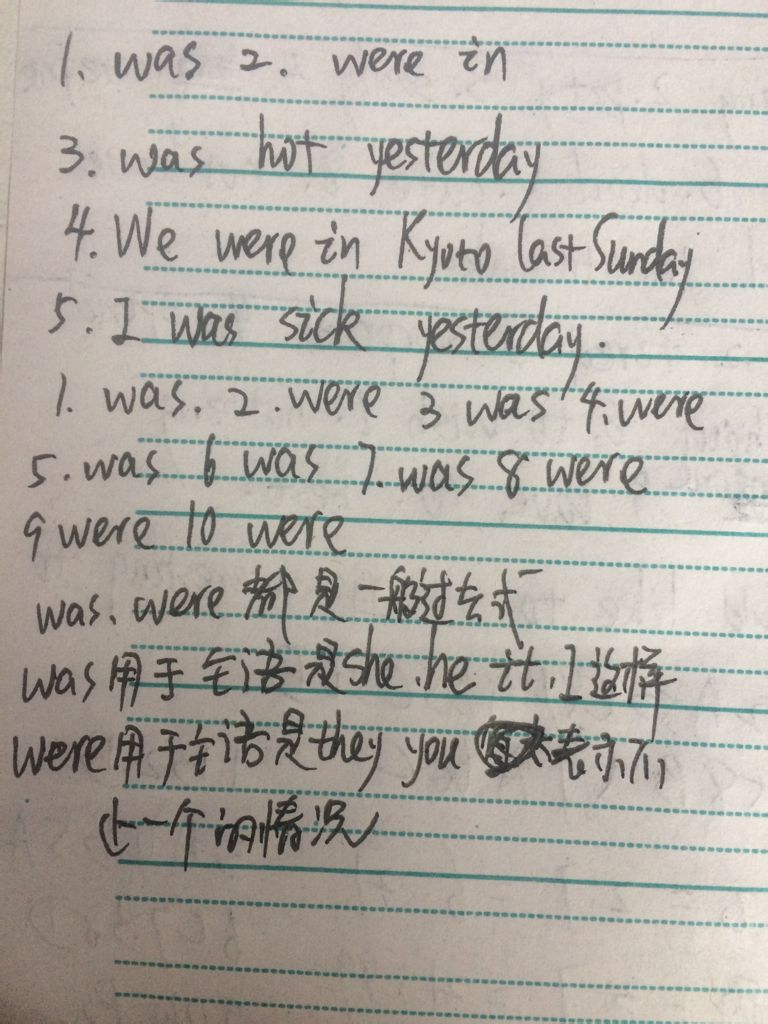 1. was 2. were in
3. was hot yesterday
4. We were in Kyoto last Sunday
5. I was sick yesterday.
1. was. 2. were 3 was 4. were
5. was 6 was 7. was 8 were
9 were 10 were
was、were 都是一般过去式
was用于主语是she、he it、I 这样
were用于主语是they you 表示不
止一个的情况